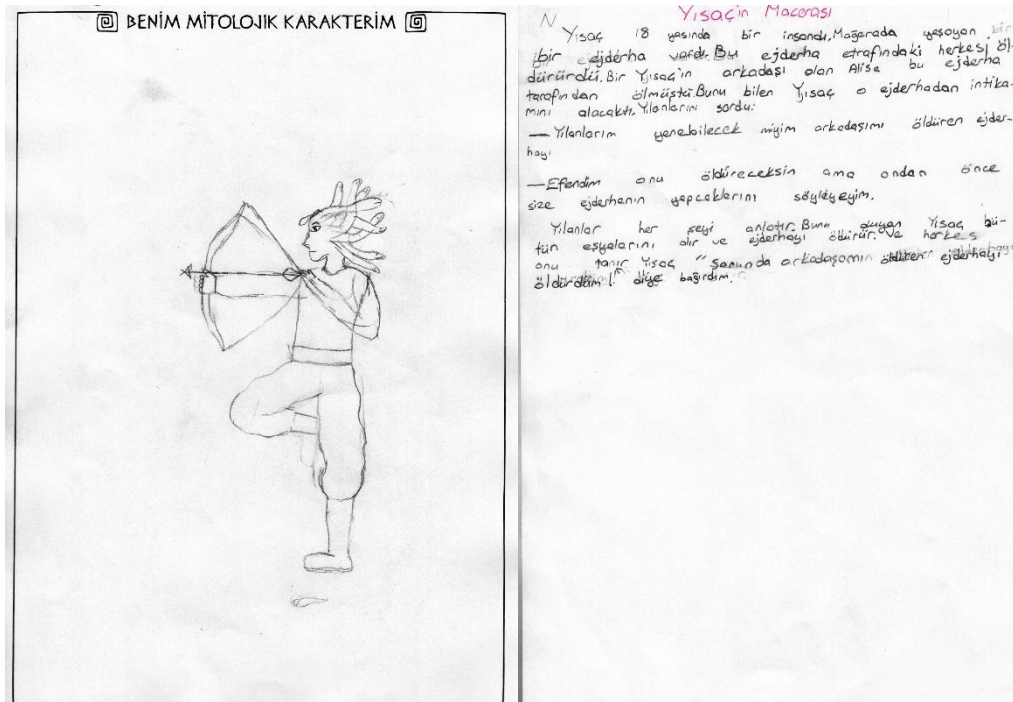 BENİM MİTOLOJİK KARAKTERİM
N
Yısaç'ın Macerası
Yısaç 18 yaşında bir insandı. Mağarada yaşayan bir
bir ejderha vardı. Bu ejderha etrafındaki herkesi öl-
dürürdü. Bir Yısaç'ın arkadaşı olan Alisa bu ejderha
tarafından ölmüştü. Bunu bilen Yısaç o ejderhadan intika-
mını alacaktı. Yılanlarını sordu:
— Yılanlarım yenebilecek miyim arkadaşımı öldüren ejder-
hayı
— Efendim onu öldüreceksin ama ondan önce
size ejderhanın yapcaklarını söyleyeyim.
Yılanlar her şeyi anlatır. Bunu duyan Yısaç bü-
tün eşyalarını alır ve ejderhayı ödürür. Ve herkes
onu tanır Yısaç "Sonunda arkadaşomın öldüren ejderhayı
öldürdüm!" diye bağırdım.